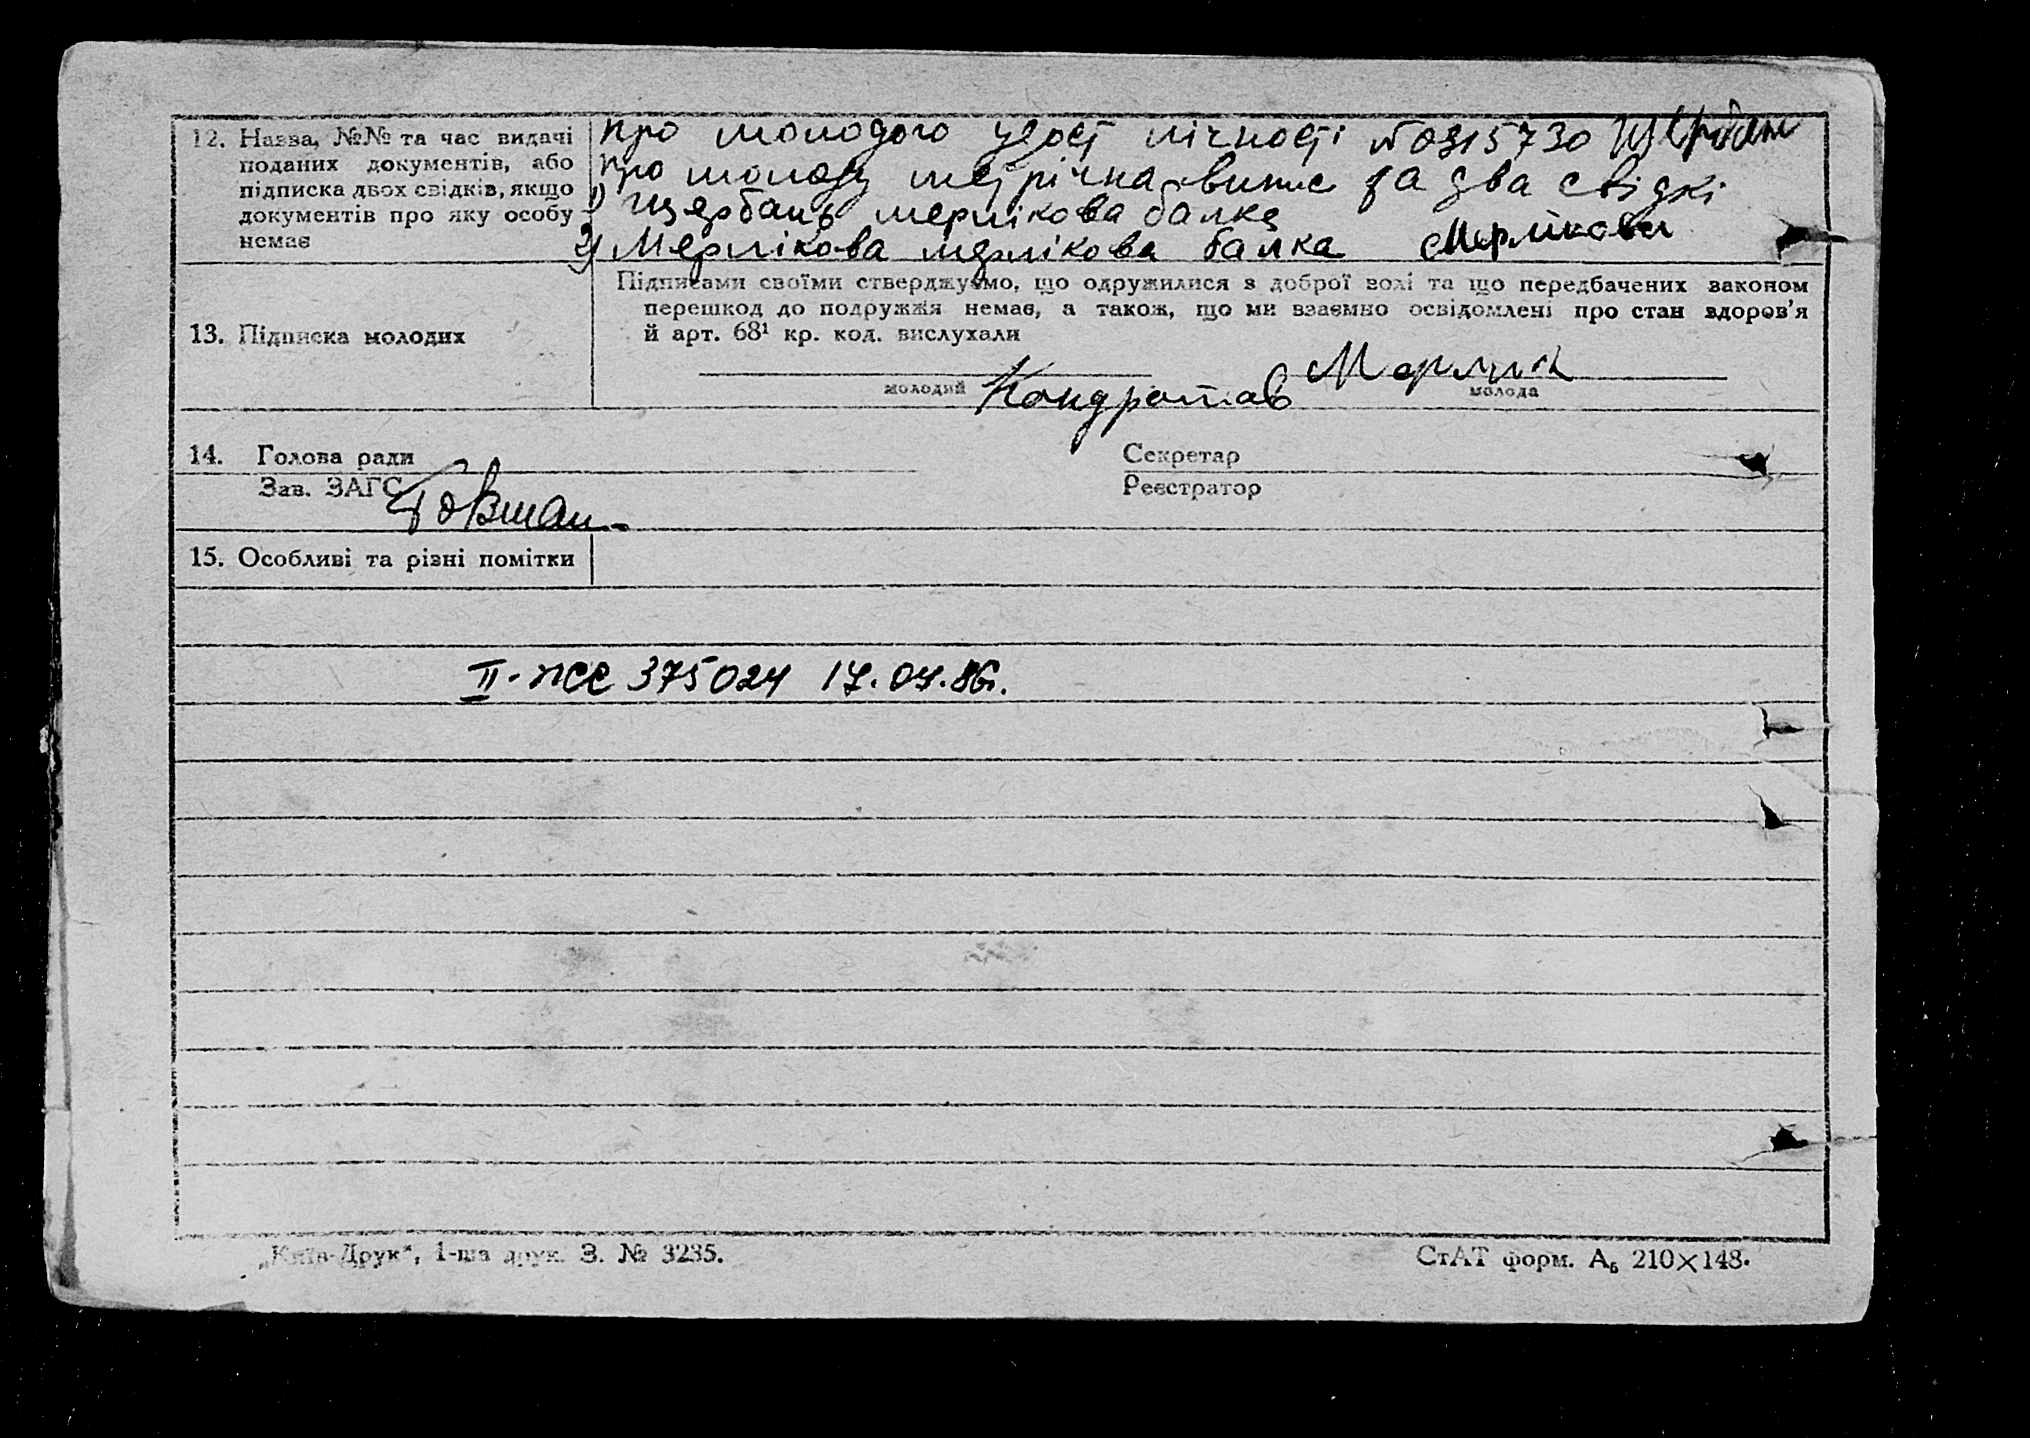 12. Назва, №№ та час видачі
поданих документів, або
підписка двох свідків, якщо
документів про яку особу
немає
про молодого удост лічності №0315730 Щербан
про молоду метрічна випис та два свідкі
1) Щербань мерлікова балка
2) Мерлікова мерлікова балка Мерлікова
13. Підписка молодих
Підписами своїми стверджуємо, що одружилися з доброї волі та що передбачених законом
перешкод до подружжя немає, а також, що ми взаємно освідомлені про стан здоров'я
й арт. 68¹ кр. код. вислухали
Мерлик
молодий Кондратов молода
14. Голова ради Секретар
Зав. ЗАГС Реєстратор
Товман
15. Особливі та різні помітки
II-ЖС 375024 17.07.86г.
„Київ-Друк", 1-ша друк. З. № 3235. СтАТ форм. А₅ 210×148.